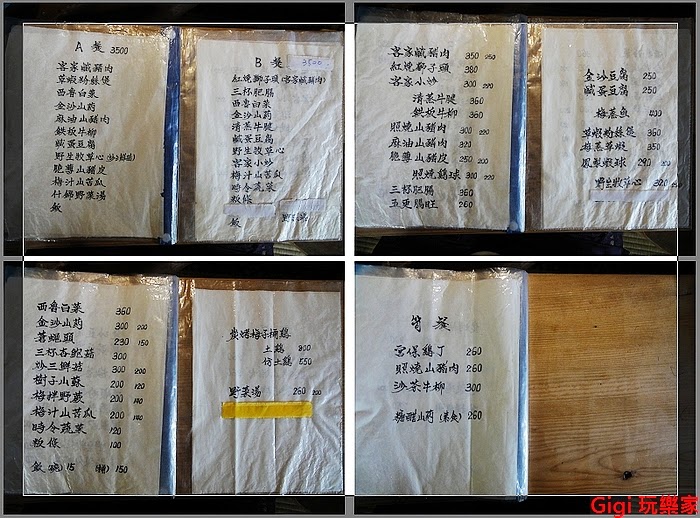 A 餐 3500
客家鹹豬肉
草蝦粉絲煲
西魯白菜
金沙山葯
麻油山豬肉
鉄板牛柳
鹹蛋豆腐
野生牧草心
脆薄山豬皮
梅汁山苦瓜
什錦野菜湯
飯
B 餐 3500
紅燒獅子頭(客家鹹豬肉)
三杯肥腸
西魯白菜
金沙山葯
清蒸牛腱
鹹蛋豆腐
野生牧草心
客家小炒
梅汁山苦瓜
時令蔬菜
粄條
飯
客家鹹豬肉 350 250
紅燒獅子頭 380
客家小炒 300 200
清蒸牛腱 360
鉄板牛柳 360
照燒山豬肉 300 200
麻油山豬肉 320
脆薄山豬皮 250 200
照燒鷄球 300 220
三杯肥腸 360
五更腸旺 260
金沙豆腐 250
鹹蛋豆腐 250
梅蒸魚 400
草蝦粉絲煲 360
鳳梨蝦球 290
野生牧草心 320
西魯白菜 360
金沙山葯 300 200
蒼蠅頭 230 150
三杯杏鮑菇 300
炒三鮮菇 300
樹子山蘇 200 120
梅拌野蕨 200 140
梅汁山苦瓜 200 140
時令蔬菜 120
粄條 100
飯(碗) 15 (桶) 150
炭烤梅子桶鷄
土鷄 800
仿土鷄 550
野菜湯 260 200
簡餐
宮保鷄丁 260
照燒山豬肉 260
沙茶牛柳 300
糖醋山葯(素食) 260
Gigi 玩樂家